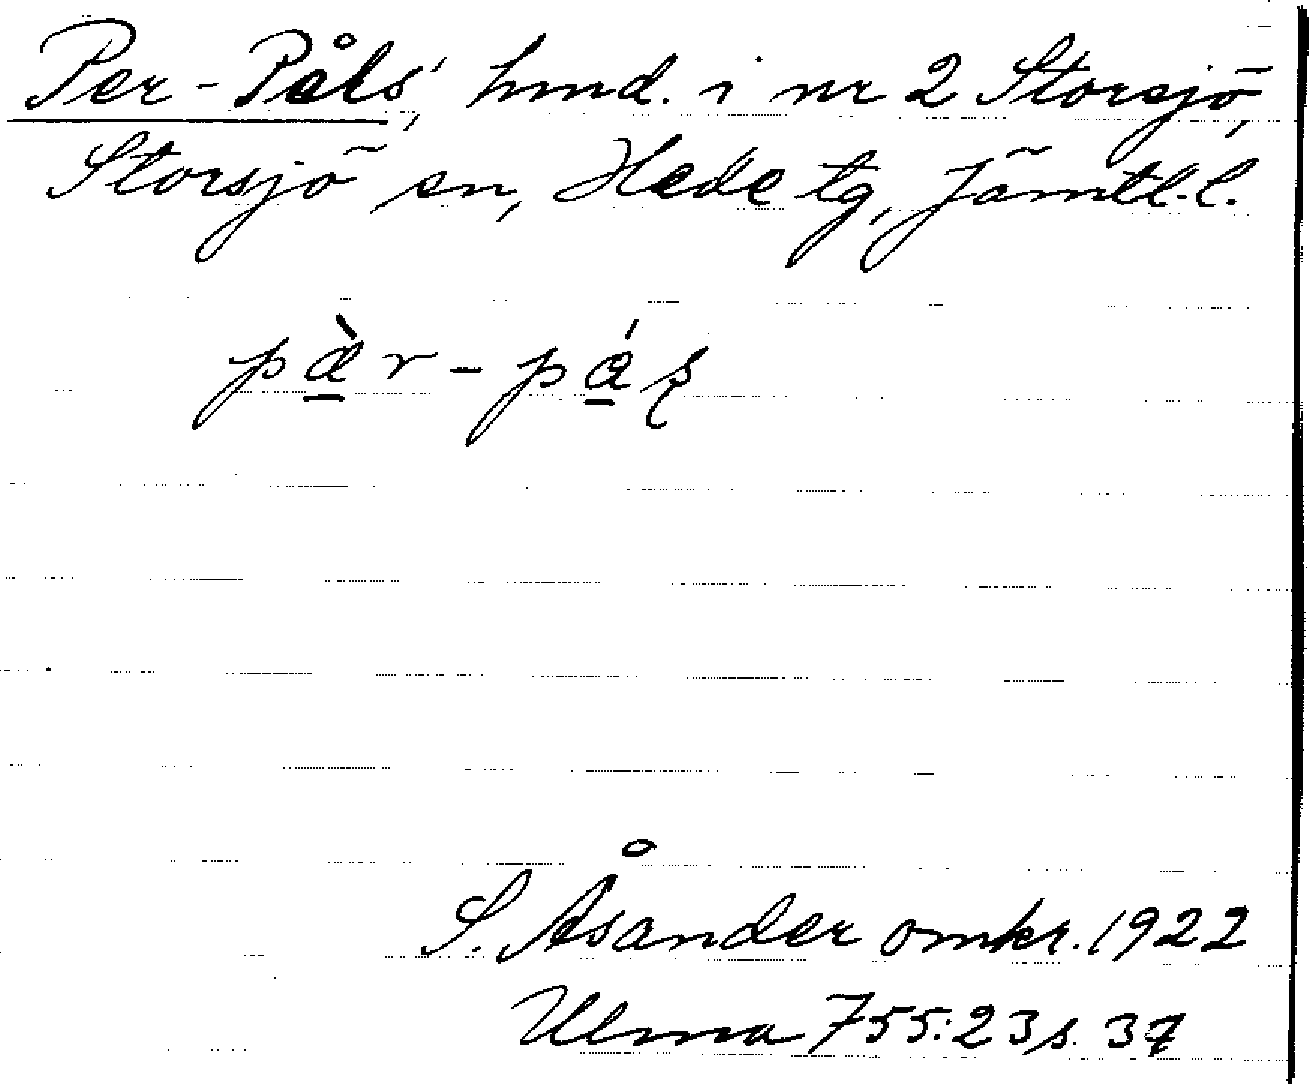 Per-Påls', hmd. i nr 2 Storsjö,
Storsjö sn, Hede tg, Jämtl.l.
pæ̀r-pá̱ʂ
S. Åsander omkr. 1922
Ulma 755:23 s. 37